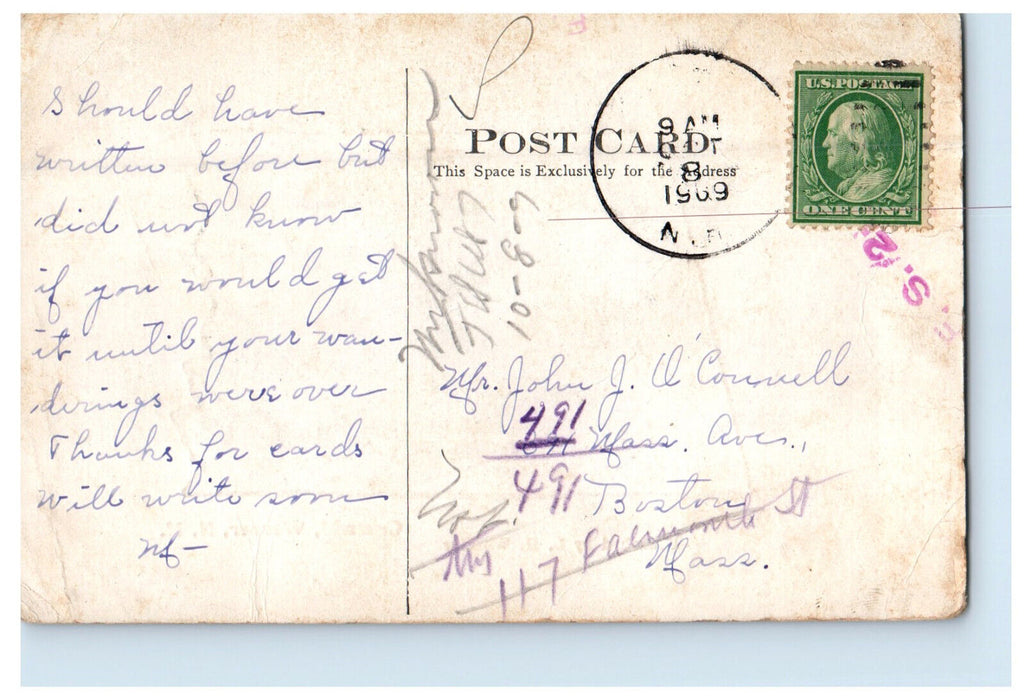 Should have
written before but
did not know
if you would get
it until your wan-
derings were over
Thanks for cards
will write soon
M-
POST CARD.
This Space is Exclusively for the Address
9 AM
8
1909
N.H.
U.S. POSTAGE
ONE CENT
10-8-09
Mr. John J. O'Connell
491
Mass. Ave.,
491 Boston
Mass.
117 Falmouth St